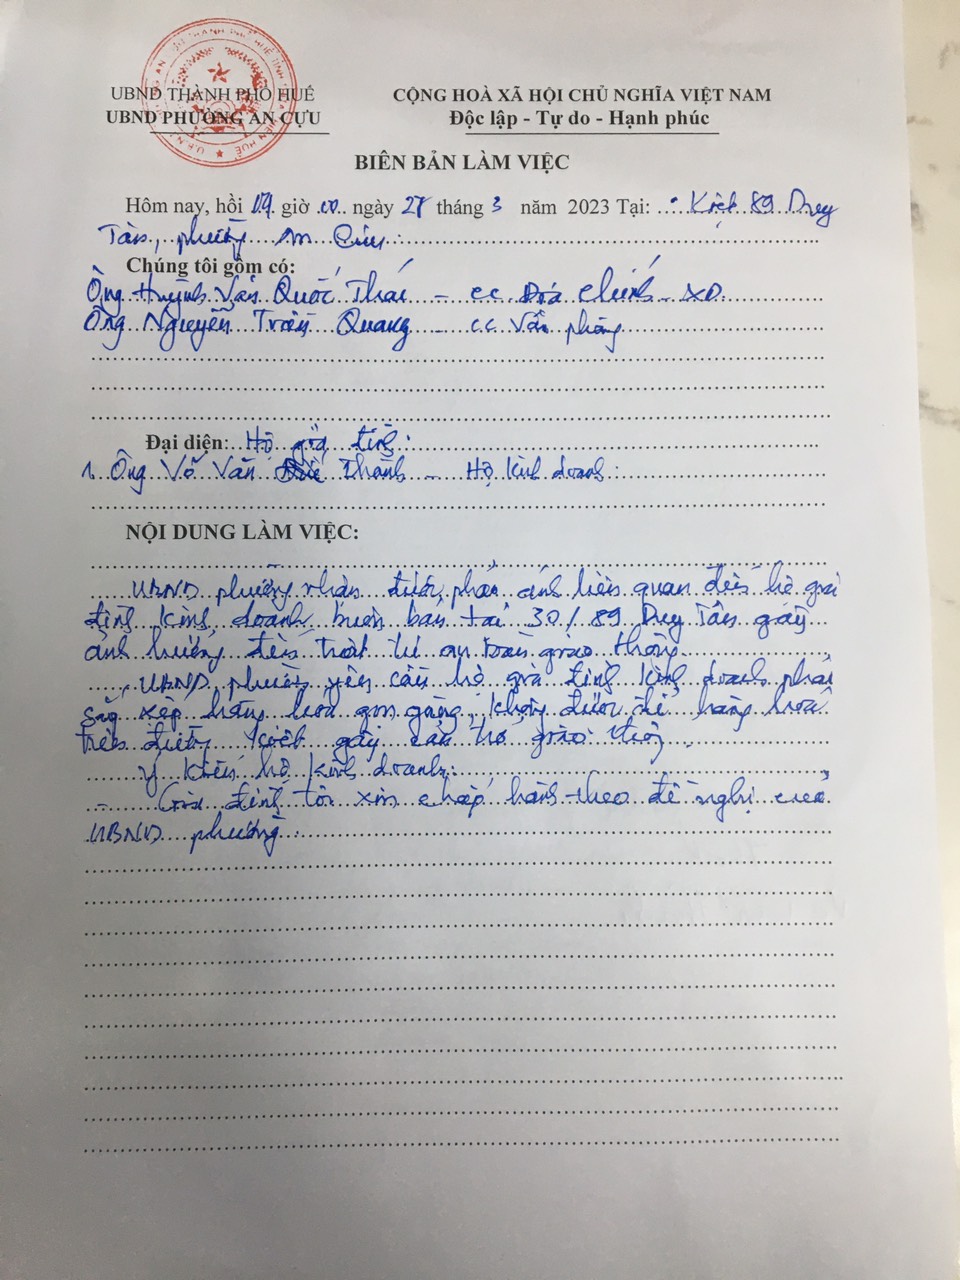 UBND THÀNH PHỐ HUẾ
UBND PHƯỜNG AN CỰU
CỘNG HOÀ XÃ HỘI CHỦ NGHĨA VIỆT NAM
Độc lập - Tự do - Hạnh phúc
BIÊN BẢN LÀM VIỆC
Hôm nay, hồi giờ 00 ngày 27 tháng 3 năm 2023 Tại: Kiệt 89 Duy
Tân, phường An Cựu.
Chúng tôi gồm có:
Ông Huỳnh Văn Quốc Thái - CC Địa chính - XD
Ông Nguyễn Trần Quang - CC Văn phòng
Đại diện: Hộ gia đình:
1. Ông Võ Văn Thành - Hộ kinh doanh:
NỘI DUNG LÀM VIỆC:
UBND phường nhận được phản ánh liên quan đến hộ gia
đình kinh doanh buôn bán tại 30/89 Duy Tân gây
ảnh hưởng đến trật tự an toàn giao thông.
UBND phường yêu cầu hộ gia đình kinh doanh phải
sắp xếp hàng hóa gọn gàng, không được để hàng hóa
trên đường kiệt gây cản trở giao thông.
Ý kiến hộ kinh doanh:
- Gia đình tôi xin chấp hành theo đề nghị của
UBND phường.